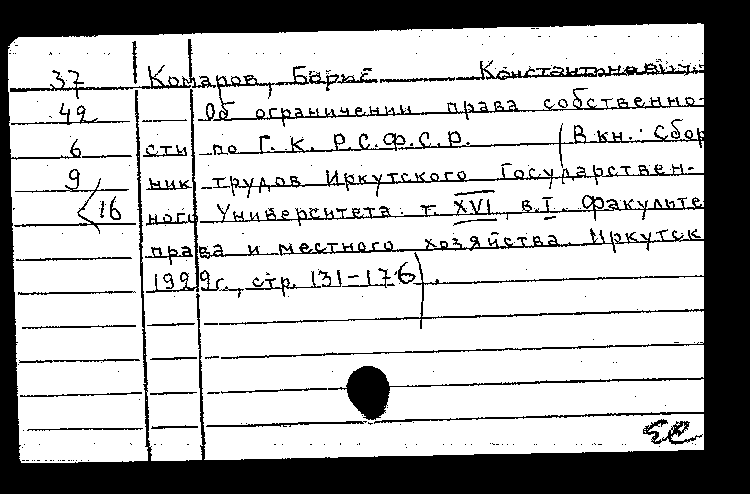 37 Комаров, Борис Константинович.
42 Об ограничении права собственно-
6 сти по Г. К. Р.С.Ф.С.Р. (В кн.: Сбор
9 ник трудов Иркутского Государствен-
<16 ного Университета. т. XVI, в. I. Факульте
права и местного хозяйства. Иркутск
1929г., стр. 131-176).